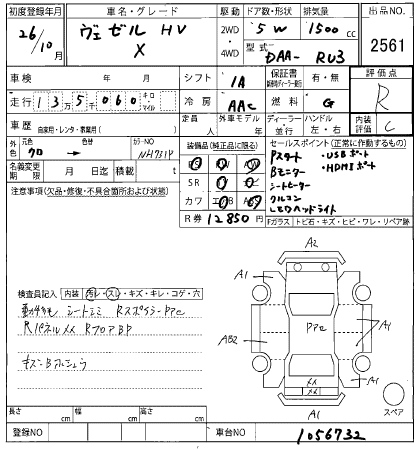 初度登録年月 車名・グレード 駆動 ドア数・形状 排気量 出品NO.
26/10月 ヴェゼル HV X 2WD 4WD 5 W 1500 cc 2561
型式 DAA- RU3
車検 年 月 シフト IA 保証書 有・無 評価点
走行 135060 キロ マイル 冷房 AAC 燃料 G R
車歴 自家用・レンタ・教習用( ) 定員 人 外車モデル 年 ディーラー 並行 ハンドル 左・右 内装評価 C
外色 元色 クロ 色替 カラーNO NH731P
装備品(純正品に限る) セールスポイント(正常に作動するもの)
名義変更期限 月 日迄 積載 t
Pスタート ・USBポート
Bモニター ・HDMIポート
シートヒーター
クルコン
LEDヘッドライト
SR
カワ
注意事項(欠品・修復・不具合箇所および状態)
R券 12850円
Fガラス トビ石・キズ・ヒビ・ワレ・リペア跡
A2
A1 A1
検査員記入 内装 汚レ・スレ・キズ・キレ・コゲ・穴
シートシミ Rスポイラーアアe
Rパネルメメ RフロアBP
AB2 A1
A1
メメ
A1
スペア
長さ cm 幅 cm 高さ cm
登録NO 車台NO 1056732